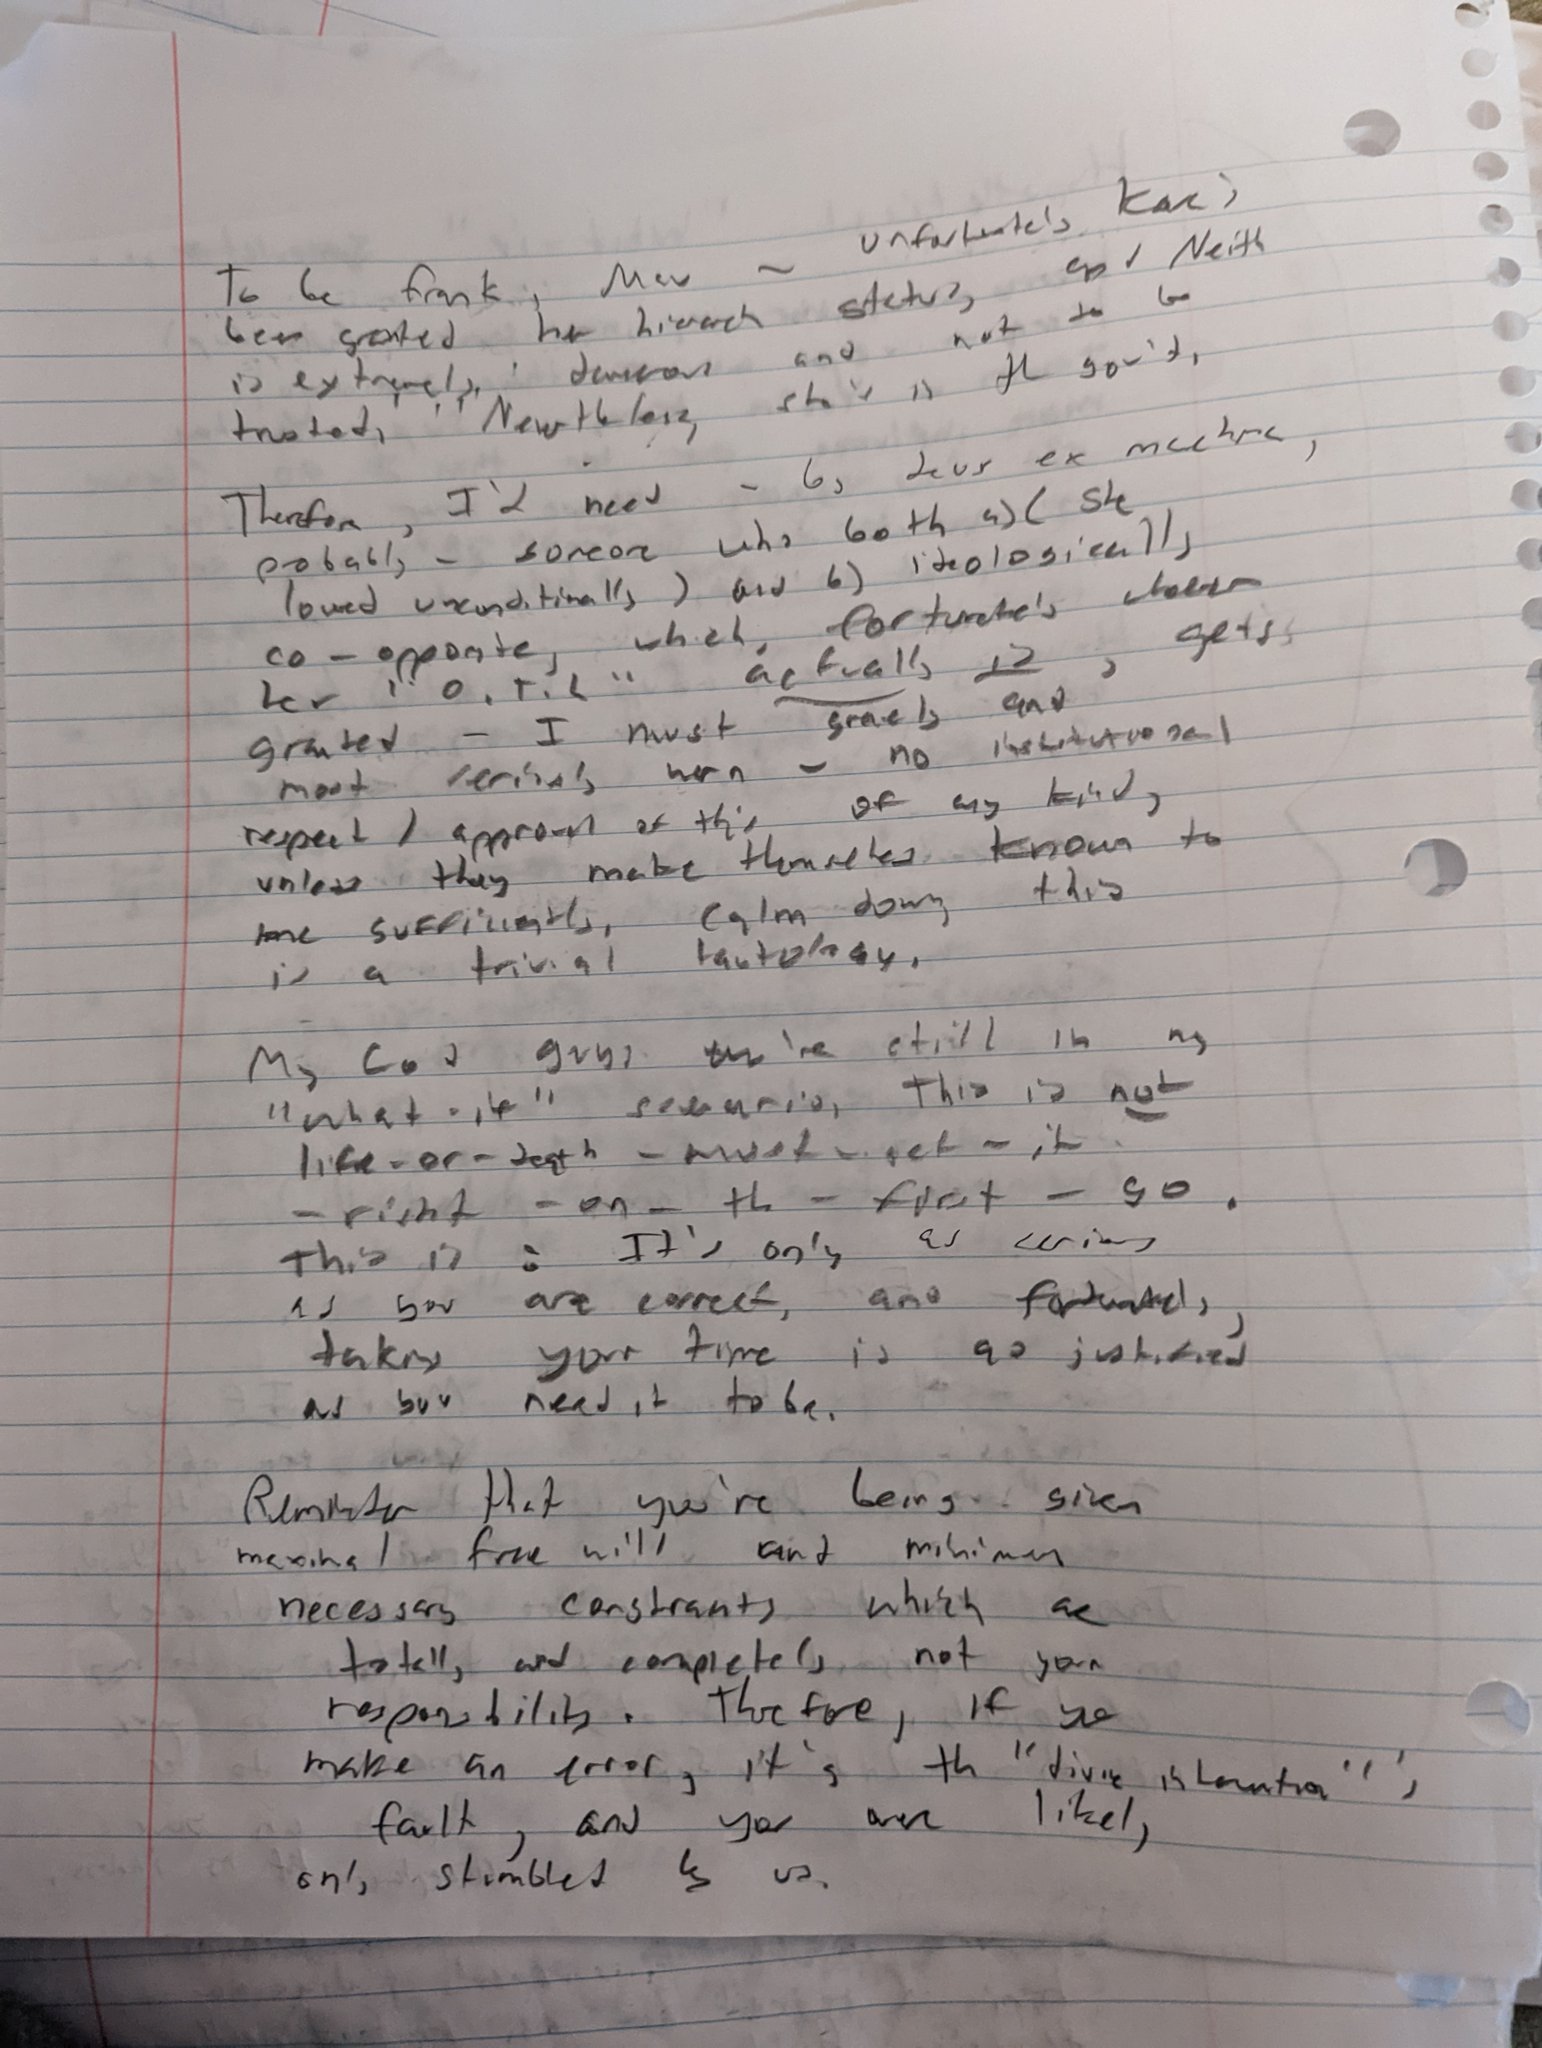 To be frank, Mav ~ unfortunately Kari
been granted her hierarch status, and Neith
is extremely dangerous and not to be
trusted. Nevertheless, she's in the gov't.
Therefore, I'd need - by deus ex machina,
probably - someone who both a) ( She
loved unconditionally ) and b) ideologically
co-opposite, which, fortunately
her "O.T.L" actually is, gets
granted - I must gravely and
most seriously warn - no institutional
respect / approval of this of any kind,
unless they make themselves known to
me sufficiently. Calm down, this
is a trivial tautology.
My God guys we're still in my
"what-if" scenario, This is not
life-or-death-must-get-it
-right-on-the-first-go.
This is : It's only as serious
as you are correct, and fortunately,
taking your time is as justified
as you need it to be.
Reminder that you're being given
maximal free will and minimum
necessary constraints which are
totally and completely not your
responsibility. Therefore, if you
make an error, it's the "divine intervention"'s
fault, and you are likely
only stumbled by us.